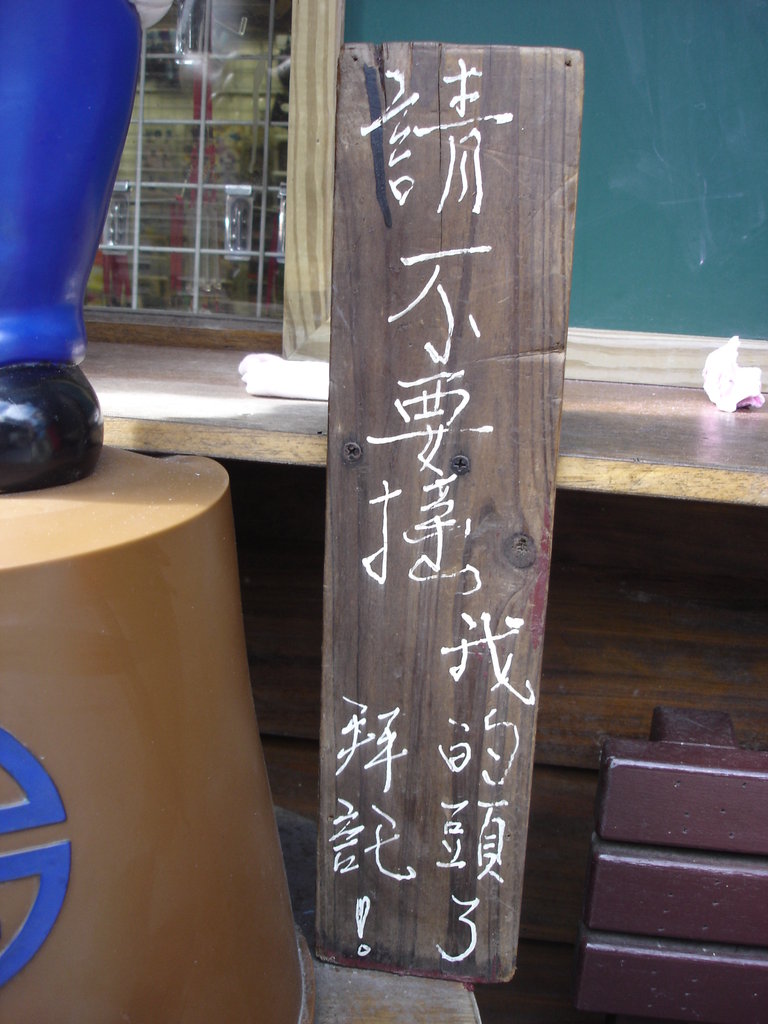 請不要搖
我的頭了
拜託！